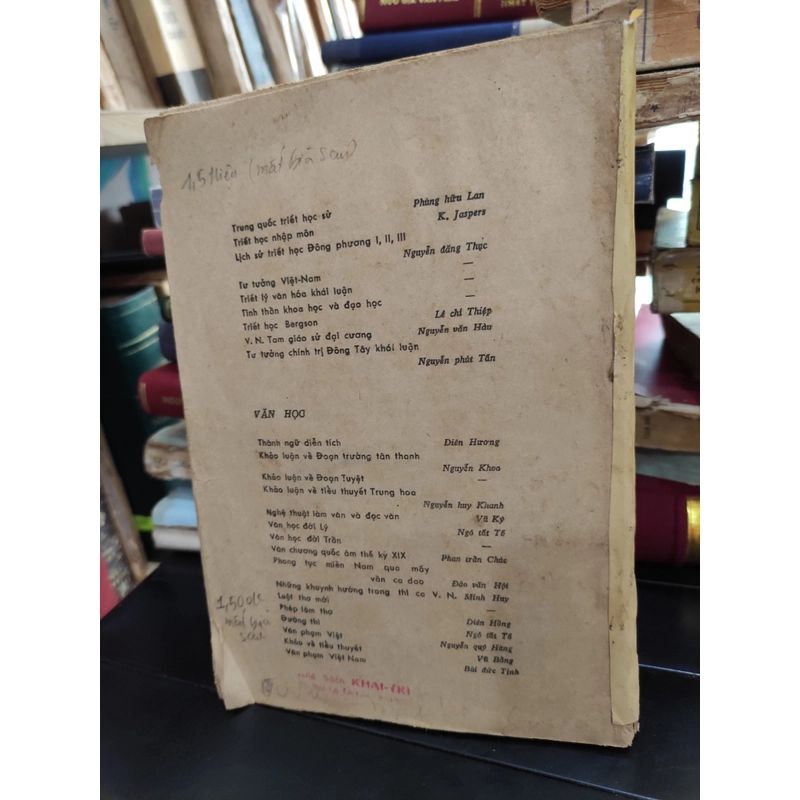 1,5 Hiên (mất bìa sau)
Phùng hữu Lan
Trung quốc triết học sử
K. Jaspers
Triết học nhập môn
Lịch sử triết học Đông phương I, II, III
Nguyễn đăng Thục
Tư tưởng Việt-Nam —
Triết lý văn hóa khái luận —
Tinh thần khoa học và đạo học —
Triết học Bergson Lê chí Thiệp
V. N. Tam giáo sử đại cương Nguyễn văn Hầu
Tư tưởng chính trị Đông Tây khái luận
Nguyễn phút Tấn
VĂN HỌC
Thành ngữ điển tích Diên Hương
Khảo luận về Đoạn trường tân thanh
Nguyễn Khoa
Khảo luận về Đoạn Tuyệt —
Khảo luận về tiểu thuyết Trung hoa
Nguyễn huy Khanh
Nghệ thuật làm văn và đọc văn Vũ Ký
Văn học đời Lý Ngô tất Tố
Văn học đời Trần —
Văn chương quốc âm thế kỷ XIX Phan trần Chúc
Phong tục miền Nam qua mấy
vần ca dao Đào văn Hội
Những khuynh hướng trong thi ca V. N. Minh Huy
Luật thơ mới —
Phép làm thơ Diên Hồng
Đường thi Ngô tất Tố
Văn phạm Việt Nguyễn quý Hùng
Khảo về tiểu thuyết Vũ Bằng
Văn phạm Việt Nam Bùi đức Tịnh
1,50đc
mất bìa
sau
KHAI-TRÍ